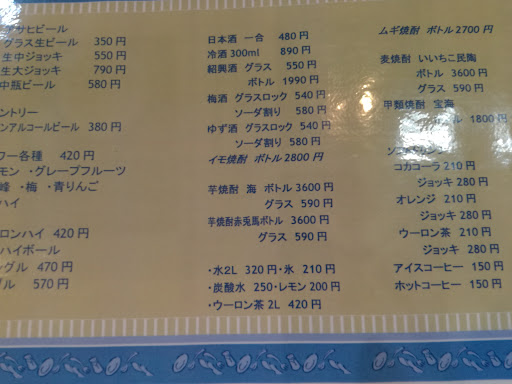 アサヒビール
グラス生ビール 350円
生中ジョッキ 550円
生大ジョッキ 790円
中瓶ビール 580円
ントリー
ンアルコールビール 380円
ワー各種 420円
モン ・グレープフルーツ
峰 ・梅 ・青りんご
ハイ
ロンハイ 420円
ハイボール
ングル 470円
ブル 570円
日本酒 一合 480円
冷酒300ml 890円
紹興酒 グラス 550円
ボトル 1990円
梅酒 グラスロック 540円
ソーダ割り 580円
ゆず酒 グラスロック 540円
ソーダ割り 580円
イモ焼酎 ボトル2800円
芋焼酎 海 ボトル3600円
グラス 590円
芋焼酎赤兎馬ボトル 3600円
グラス 590円
・水2L 320円・氷 210円
・炭酸水 250・レモン200円
・ウーロン茶 2L 420円
ムギ焼酎 ボトル2700円
麦焼酎 いいちこ民陶
ボトル 3600円
グラス 590円
甲類焼酎 宝海
ル 1800円
ソフトドリンク
コカコーラ 210円
ジョッキ 280円
オレンジ 210円
ジョッキ 280円
ウーロン茶 210円
ジョッキ 280円
アイスコーヒー 150円
ホットコーヒー 150円